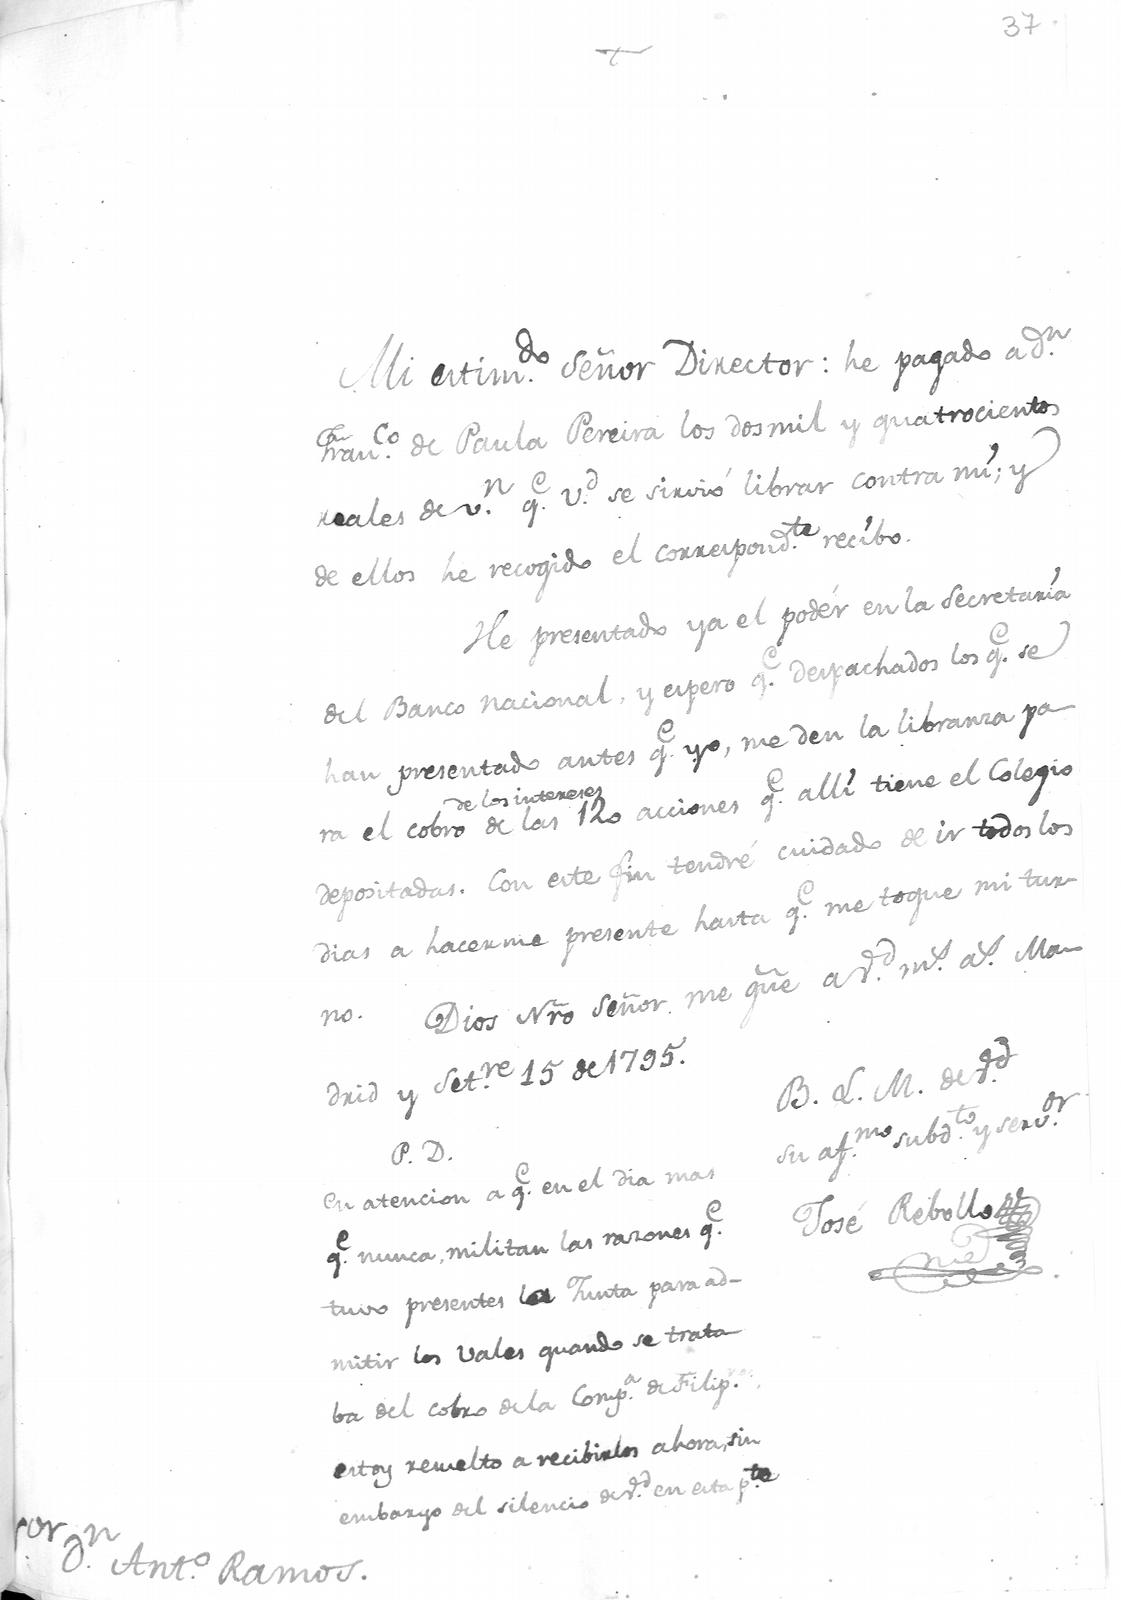 37
Mi estim.do Señor Director: he pagado a d.n
Fran.co de Paula Pereira los dos mil y quatrocientos
reales de v.n q.e V.d se sirvió librar contra mí; y
de ellos he recogido el correspond.te recíbo.
He presentado ya el podér en la Secretaría
del Banco nacional, y espero q.e despachados los q.e se
han presentado antes q.e yo, me den la libranza pa-
de los intereses
ra el cobro de las 120 acciones q.e allí tiene el Colegio
depositadas. Con este fin tendré cuidado de ir todos los
dias a hacerme presente hasta q.e me toque mi tur-
no. Dios Nrõ Señor me gũe a V.d m.s a.s Ma-
drid y Set.re 15 de 1795.
B. L. M. de V.d
su af.mo subd.to y serv.or
José Rebollo
P. D.
En atencion a q.e en el dia mas
q.e nunca, militan las razones q.e
tuvo presentes la Junta para ad-
mitir los Vales quando se trata-
ba del cobro de la Comp.a de Filip.nas,
estoy resuelto a recibirlos ahora, sin
embargo del silencio de V.d en esta p.te
or d.n Ant.o Ramos.